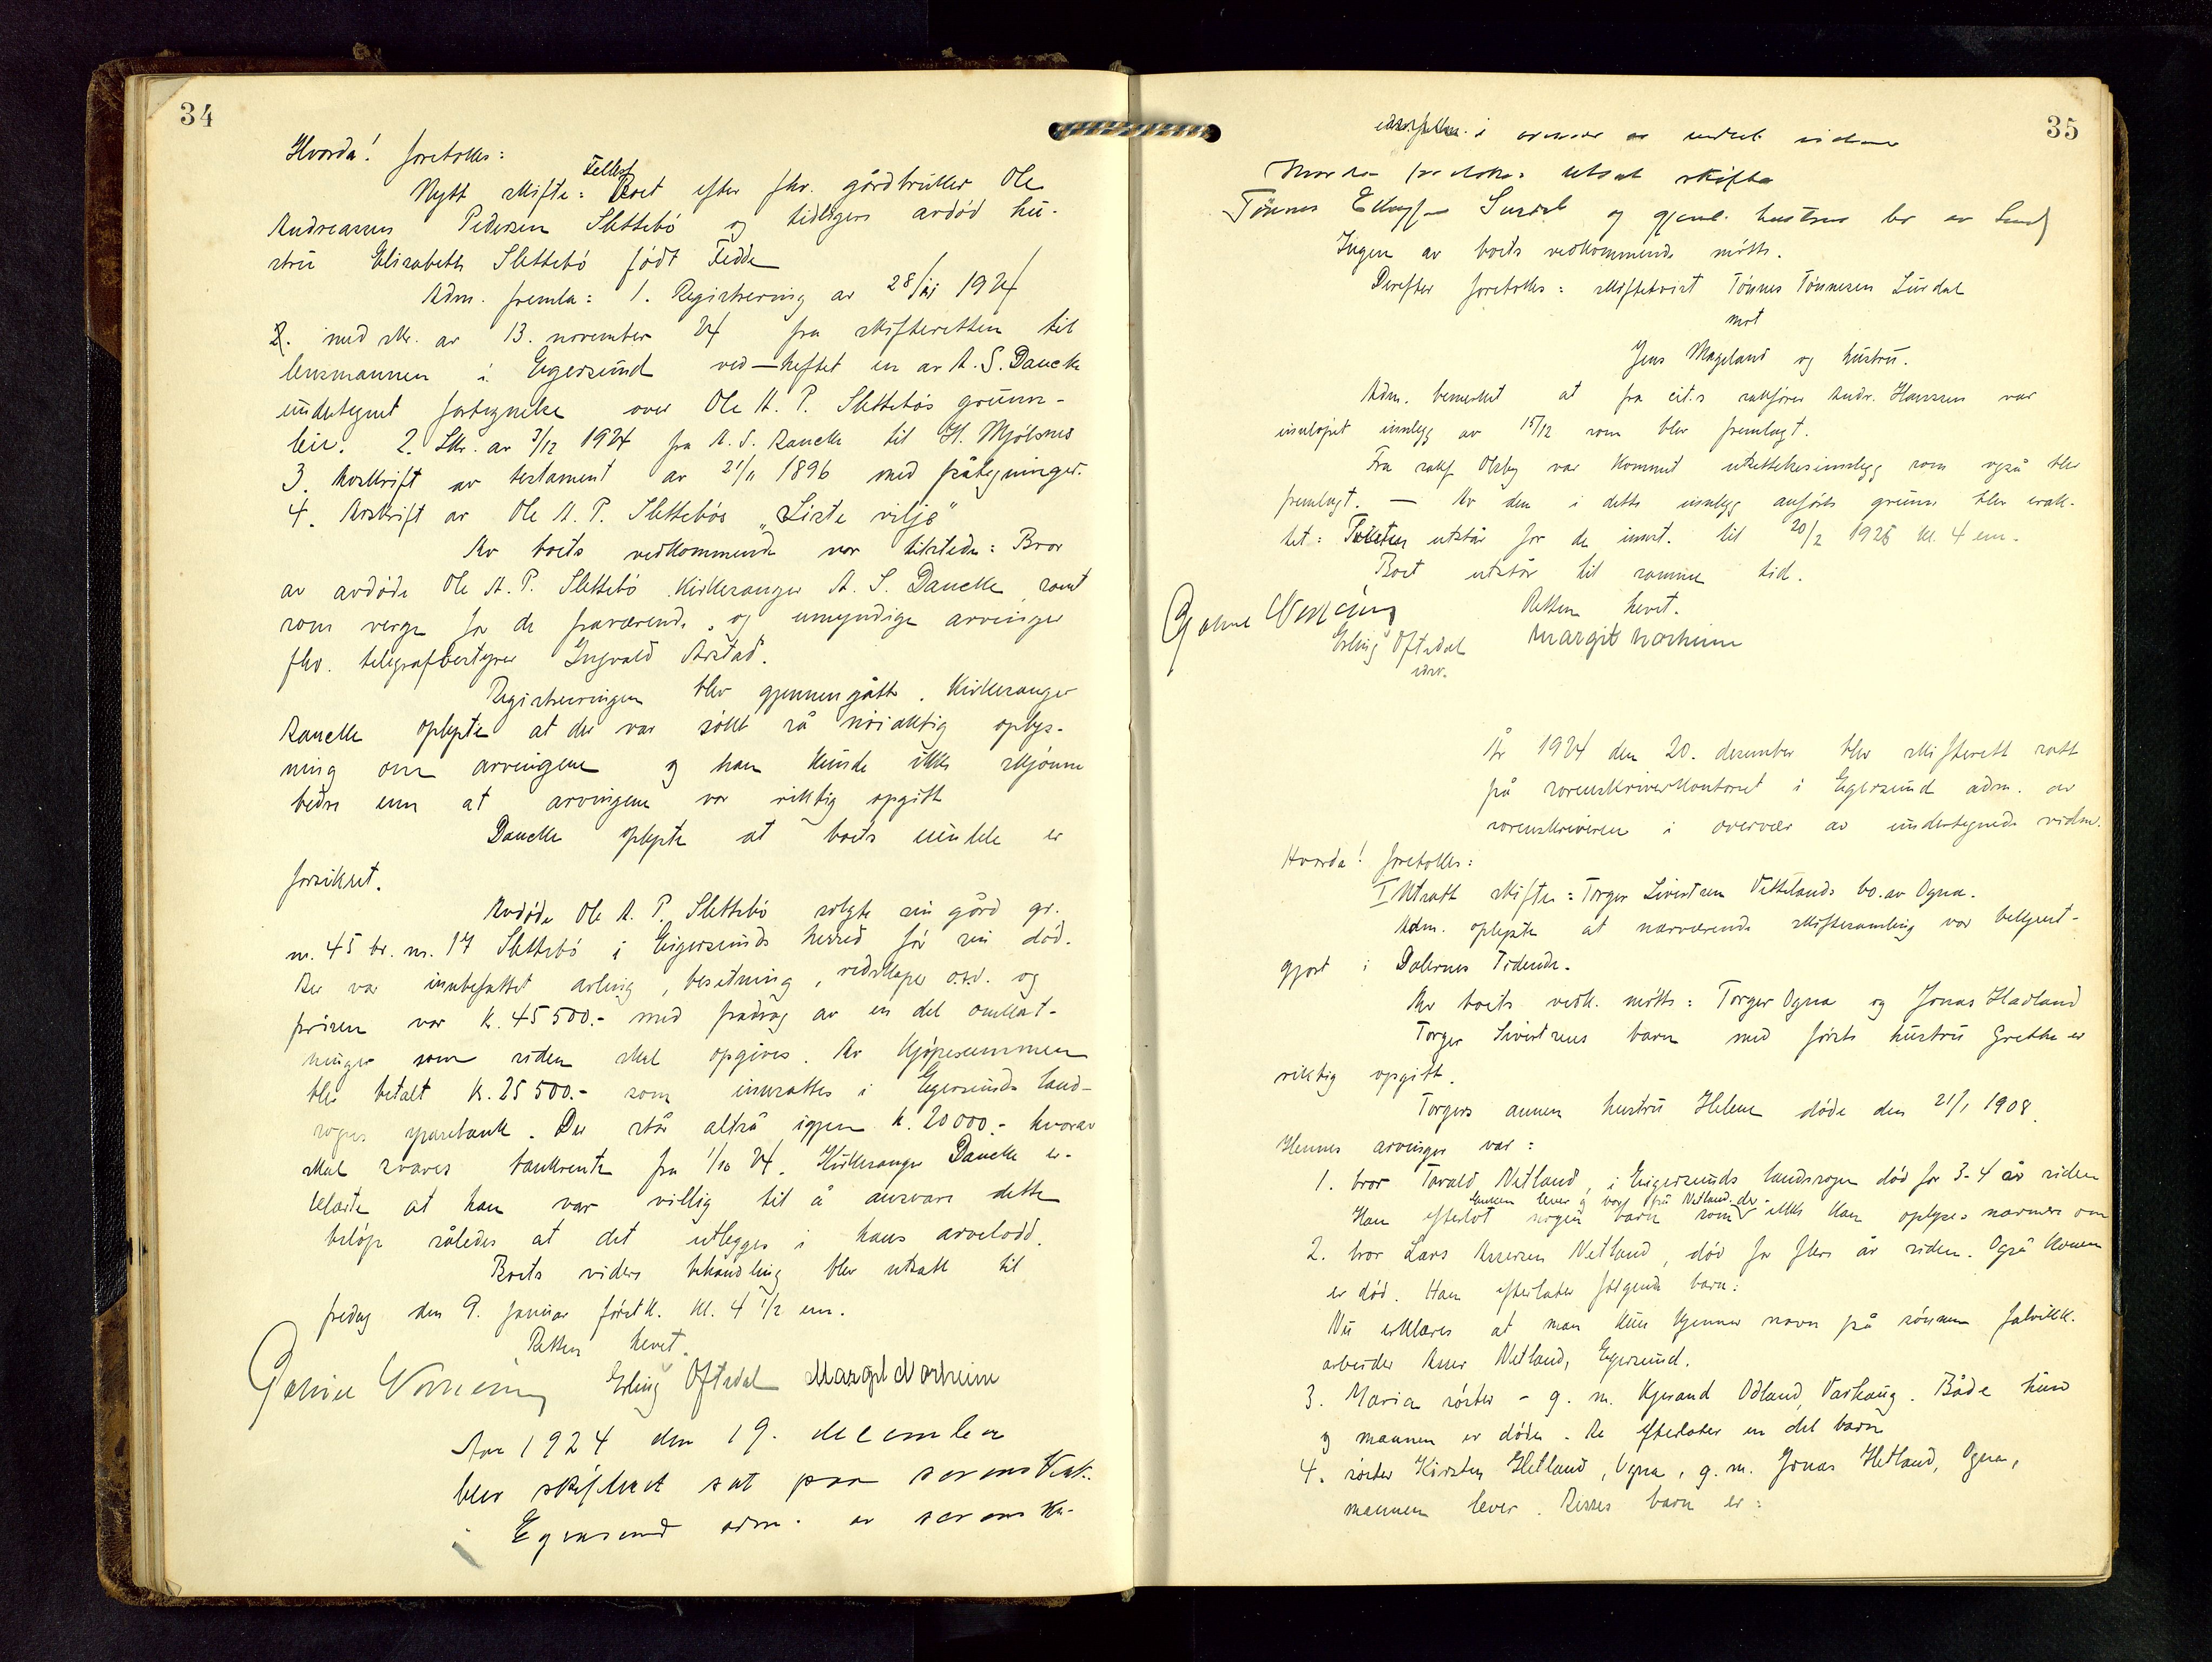 34
Hvorda! foretokes:
Nytt skifte: Fellesboet efter fhv. gårdbruker Ole
Andreassen Pedersen Slettebö og tidligere avdöd hu-
stru Elisabeth Slettebö födt Fedde
Adm. fremla: 1. Registrering av 28/11 1924
2. med skr. av 13. november 24 fra skifteretten til
lensmannen i Egersund ved-heftet en av A. S. Dancke
undertegnet fortegnelse over Ole A. P. Slettebös
2. Skr. av 3/12 1924 fra A. S. Dancke til H. Mjölsnes
3. Avskrift av testament av 21/11 1896 med påtegninger.
4. Avskrift av Ole A. P. Slettebös „Siste vilje"
Av boets vedkommende var tilstede: Bror
av avdöde Ole A. P. Slettebö kirkesanger A. S. Dancke, samt
som verge for de fraværende og umyndige arvinger
fhv. telegrafbestyrer Ingvald Årstad.
Registreringen blev gjennemgått. Kirkesanger
Dancke oplyste at der var sökt så nöiaktig oplys-
ning om arvingene og han kunde ikke skjönne
bedre enn at arvingene var riktig opgitt
Dancke oplyste at boets er
forsikret.
Avdöde Ole A. P. Slettebö solgte sin gård gr.
nr. 45 br. nr. 17 Slettebö i Eigersunds herred för sin död.
Der var innbefattet avling, besetning, redskaper o.s.v. og
prisen var kr. 45 500.- med fradrag av en del omkost-
ninger som siden skal opgives. Av kjöpesummen
blev betalt kr. 25 500.- som innsattes i Egersunds land-
sogns sparebank. Der står altså igjen kr. 20 000.- hvorav
skal svares bankrente fra 1/10 24. Kirkesanger Dancke er-
klærte at han var villig til å ansvare dette
belöp således at det utlegges i hans arvelodd.
Boets videre behandling blev utsatt til
fredag den 9. januar förstk. kl. 4 1/2 em.
Retten hevet.
Erling Oftedal Margit Norheim
Aar 1924 den 19. december
blev skifteret sat paa sorenskriv.
i Egersund adm. av sorenskr-
35
i overvær av undert. vidner
Hvorda foretokes utsat skifte
Tönnes Surdal og gjenl. hustrus bo av Lund
Ingen av boets vedkommende mötte.
Derefter foretokes: skiftetvist Tönnes Tönnesen Surdal
mot
Jens Mageland og hustru.
Adm. bemerket at fra cit.s sakförer Andr. Hanssen var
innlöpet innlegg av 15/12 som blev fremlagt.
Fra sakf. Olsby var kommet utsettelsesinnlegg som også blev
fremlagt. — Av den i dette innlegg anförte grunn blev avsk-
tet: utstår for de innst. til 20/2 1925 kl. 4 em.
Boet utstår til samme tid.
Retten hevet.
Erling Oftedal Margit Norheim
År 1924 den 20. desember blev skifterett satt
på sorenskriverkontoret i Egersund adm. av
sorenskriveren i overvær av undertegnede vidne.
Hvorda! foretokes:
I Utsatt skifte: Torger Sivertsen Vetlands bo. av Ogna.
Adm. oplyste at nærværende skiftesamling var bekjent-
gjort i Dalernes Tidende.
Av boets vedk. mötte: Torger Ogna og Jonas Hadland
Torger Sivertsens barn med förste hustru Grethe er
riktig opgitt.
Torgers annen hustru Helene döde den 21/1 1908.
Hennes arvinger var:
1. bror Tarald Netland, i Eigersunds landsogn död for 3-4 år siden
Enken lever og bor på Netland. der-
Han efterlot nogen barn som ikke kan oplyses nærmere om
2. bror Lars Assersen Netland, död for flere år siden. Også konen
er död. Han efterlater fölgende barn:
Nu erklæres at man kun kjenner navn på sönnen fabrikk-
arbeider Asser Netland, Egersund.
3. Maria söster - g. m. Gjerand Odland, Varhaug. Både hun
og mannen er döde. De efterlater en del barn
4. söster Kirsten Hetland, Ogna, g. m. Jonas Hetland, Ogna,
mannen lever. Disses barn er: